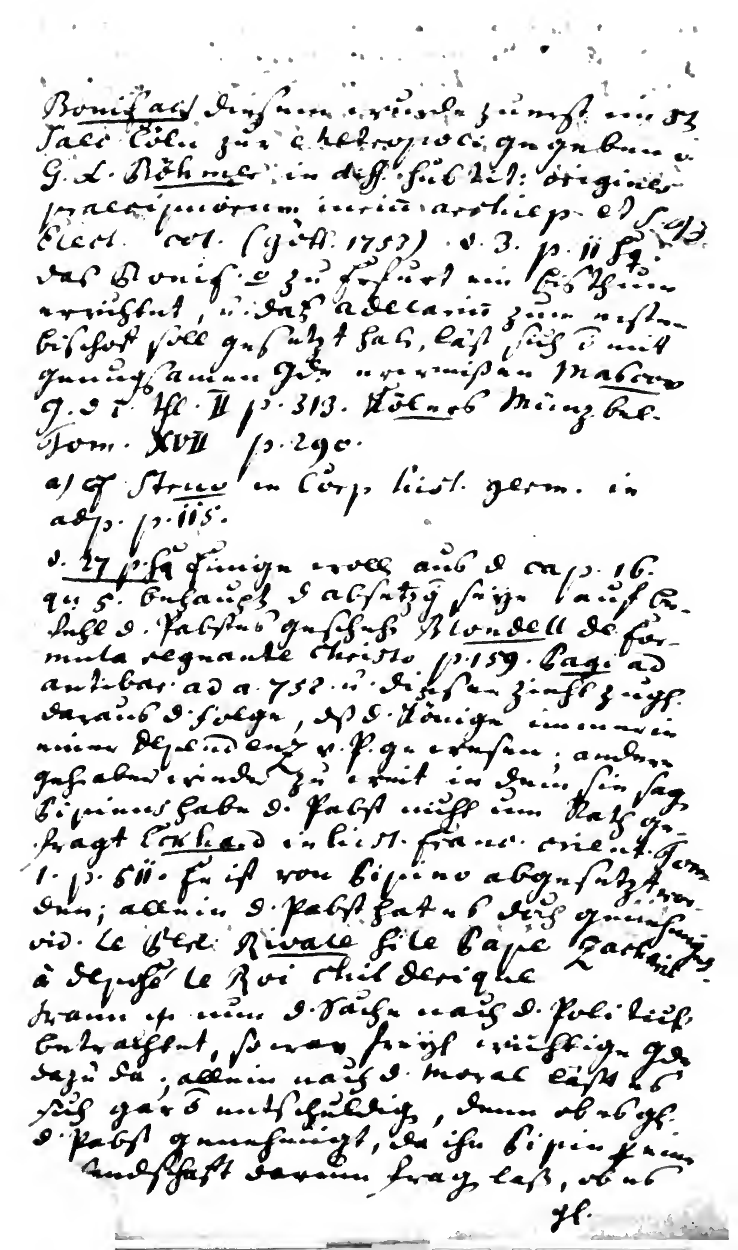 Bonifacius diesem wurde zuerst im 8t
Saec. Cöln zur Metropoli gegeben v.
G. L. Böhmer in diss. substit: origines
praecipuorum iurium archiep. et
Elect. col. (gött. 1753) §. 3. p. 11 sq.
das Bonif. zu Erfurt ein Bisthum
errichtet, u. daß Adelarium zum ersten
bischof soll gesetzt hab, läst sich mit
genugsamen erweißen Mascov
G. d T. thl. II p. 313. Kölners Münzbel.
Tom. XVII p. 290.
a) cf Steno in Corp hist. germ. in
adp. p. 115.
§. 27 p. sq Einige woll aus d cap. 16.
qu 5. behaupt d absetzg seye auf be-
fehl d. Pabstes gescheh Blondell de for-
mula regnante Christo p. 159. Pagi ad
antibar. ad a. 752. u. dieser zieht zugl.
daraus d. folge, dß d. Könige immer in
einer dependenz v. P. gewesen; andere
gehe aber wieder zu weit in dem sie sag
Pipinus habe d. Pabst nicht um Rath ge-
fragt Eckhard in hist. franc. orient. Tom
1. p. 511. Er ist von Pipino abgesetzt wor-
den; allein d. Pabst hat es doch genehmiget.
vid. le Rivale si le Pape Zacharie
à deposé le Roi Childerique
wann nun d. Sache nach d. Politik
betrachtet, so war freyl wichtige
dazu da; allein nach d. moral läst es
sich gar entschuldig, denn ob es gl.
d. Pabst genehmigt, da ihn Pipin
darum frag laß, ob es
gl.